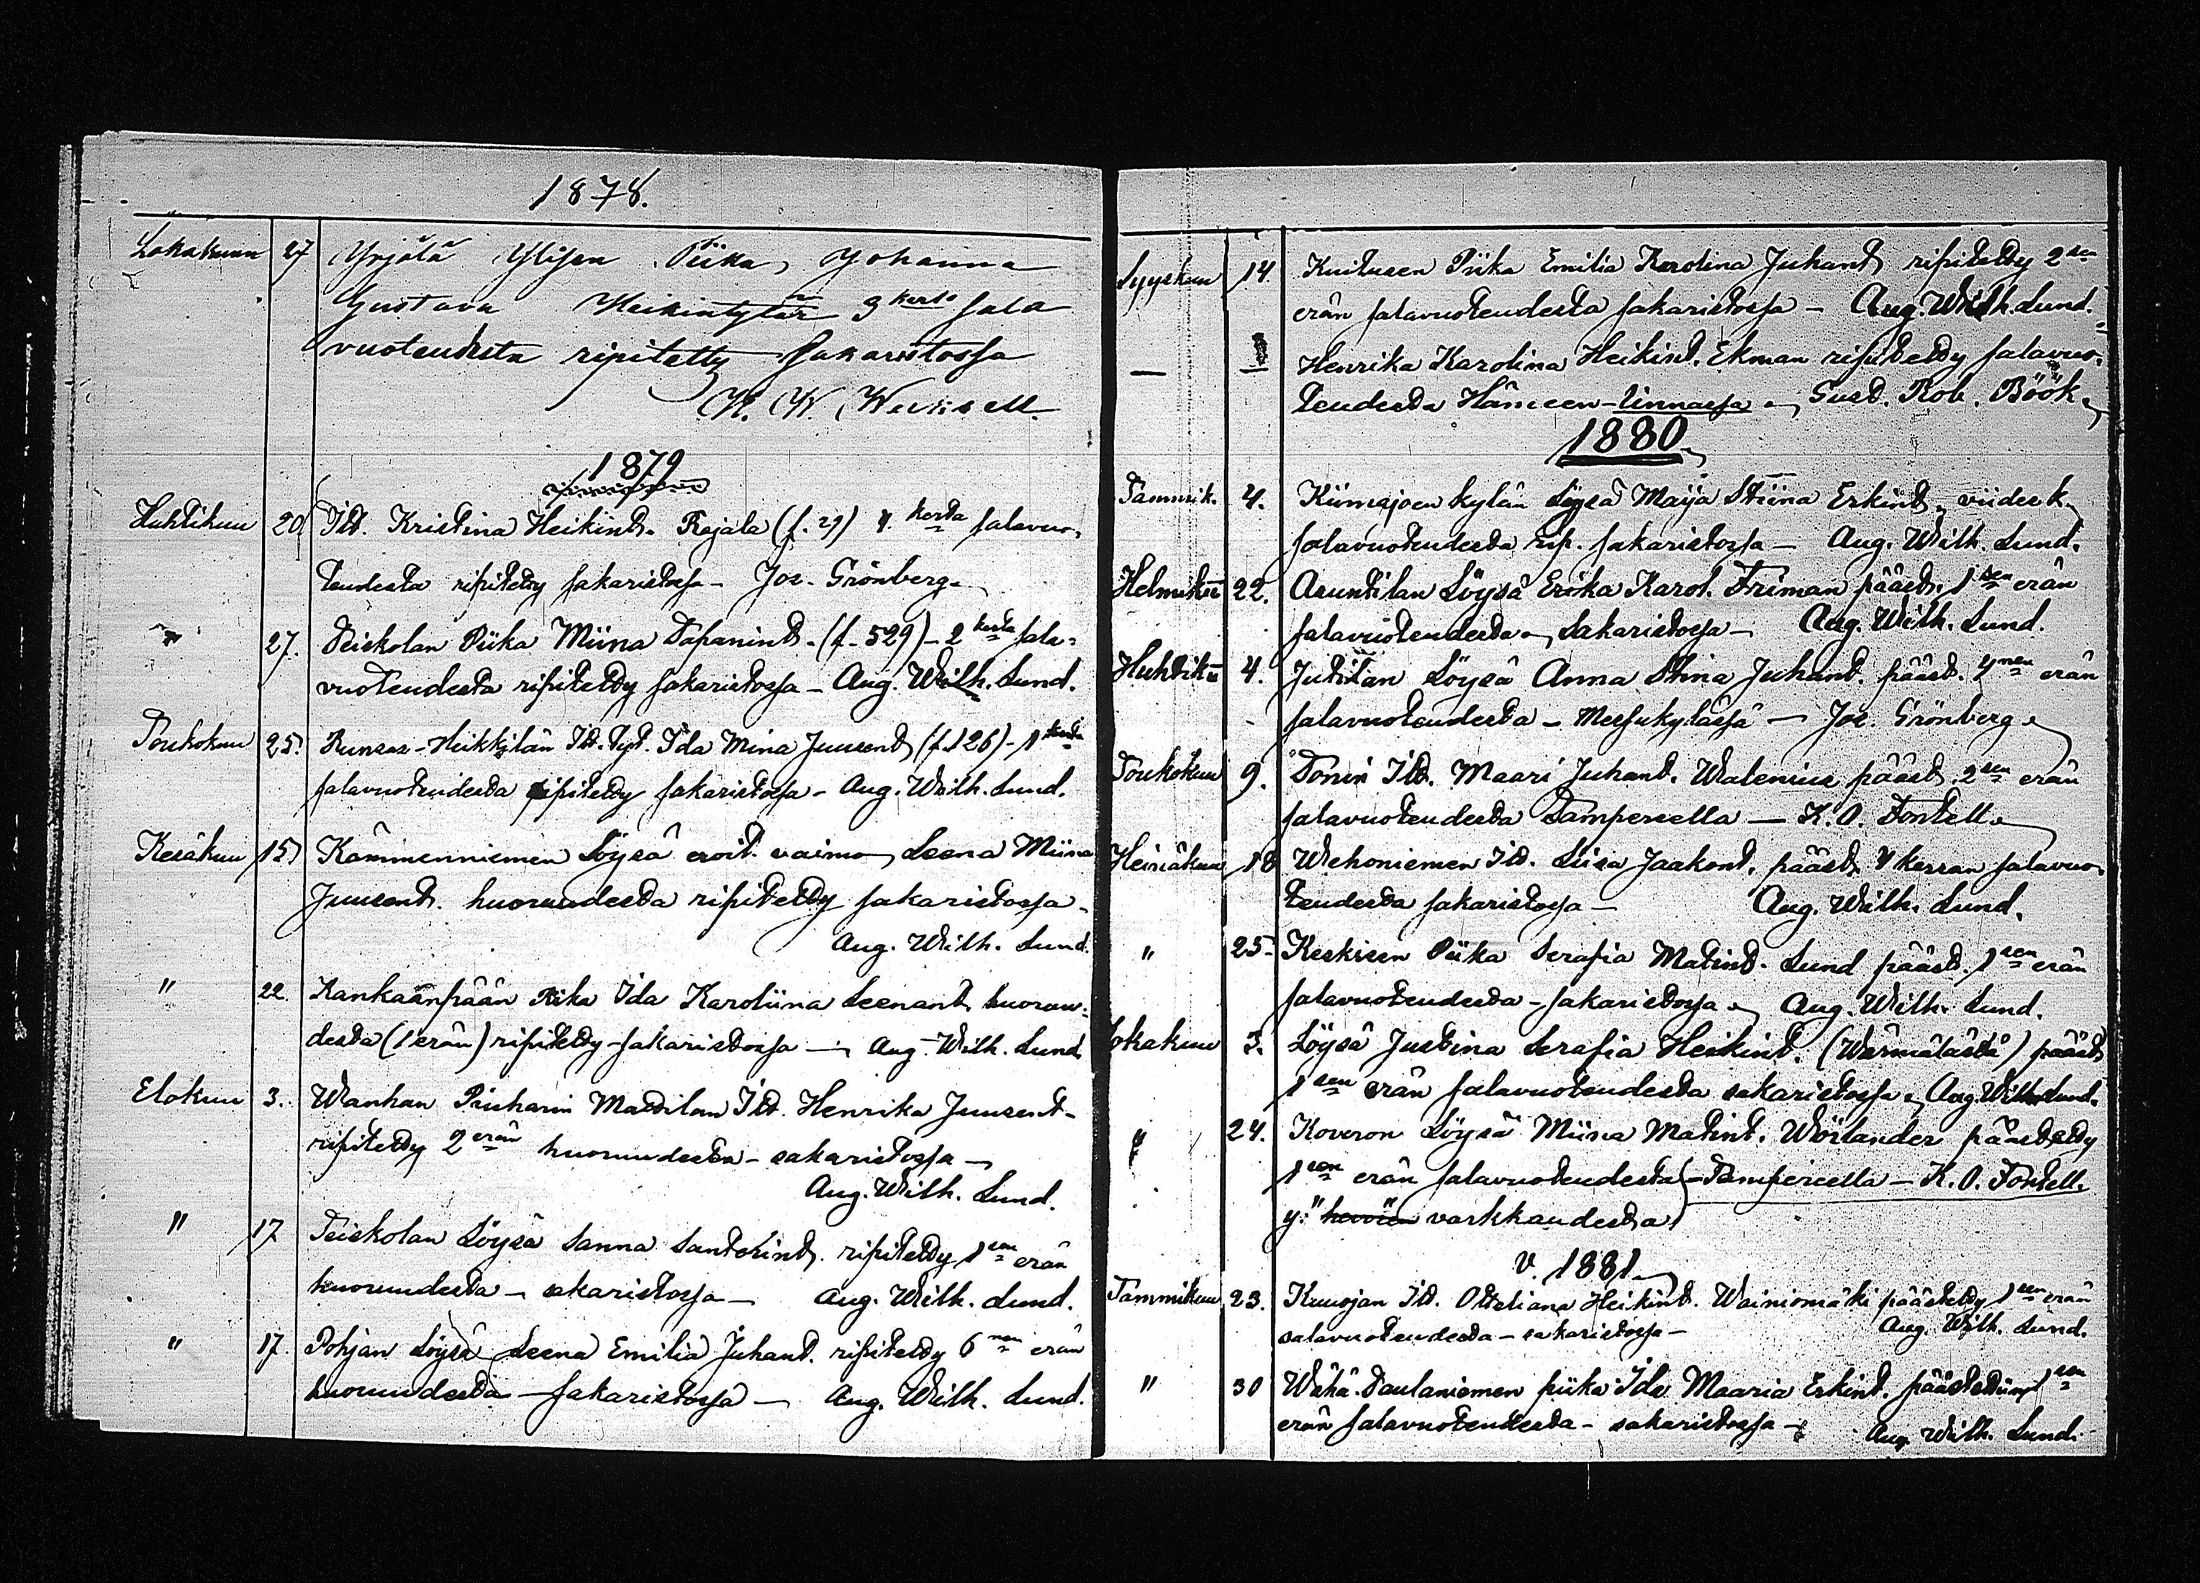 1878.
Lokakuun 27 Yrjölä Ylisen Piika, Johanna
Gustava Heikintytär 3 kerta sala
vuoteudesta ripitetty sakaristossa
K. W. Wetisell
1879
Huhtikuu 20 Itl. Kristina Heikint. Rajala (f. 29) 4. kerta salavuo-
teudesta ripitetty sakaristossa - Jos. Grönberg.
" 27. Teiskolan Piika Miina Tapanint. (f. 529) - 2 kerta sala-
vuoteudesta ripitetty sakaristossa - Aug. Wilh. Lund.
Toukokuu 25. Heikkilän Itl. tyt. Ida Mina Juusent. (f. 126) - 1 kerta
salavuoteudesta ripitetty sakaristossa - Aug. Wilh. Lund.
Kesäkuu 15 Kämmenniemen Löysä eroit. vaimo Leena Miina
Juusent. huoruudesta ripitetty sakaristossa -
Aug. Wilh. Lund.
" 22. Kankaanpään Piika Ida Karoliina Leenant. huoruu-
desta (1 erän) ripitetty sakaristossa - Aug. Wilh. Lund
Elokuu 3. Wanhan Pircharin Mattilan Itl. Henrika Juusent.
ripitetty 2 erän huoruudesta - sakaristossa -
Aug. Wilh. Lund.
" 17 Teiskolan Löysä Sanna Santerint. ripitetty 1 sen erän
huoruudesta - sakaristossa - Aug. Wilh. Lund.
" 17. Pohjan Löysä Leena Emilia Juhant. ripitetty 6 nen erän
huoruudesta - sakaristossa - Aug. Wilh. Lund.
Syyskuu 14. Kuitusen Piika Emilia Karolina Juhant. ripitetty 2 sen
erän salavuoteudesta sakaristossa - Aug. Wilh. Lund.
— Henrika Karolina Heikint. Ekman ripitetty salavuo-
teudesta Hämeen-linnassa - Gust. Rob. Böök
1880
Tammik. 4. Kiimajoen kylän Löysä Maija Stiina Erkint. viides k.
salavuoteudesta rip. sakaristossa - Aug. Wilh. Lund.
Helmik. 22. Asuntilan Löysä Erika Karol. Friman pääst. 1 sen erän
salavuoteudesta - sakaristossa - Aug. Wilh. Lund.
Huhtik. 4. Jutilan Löysä Anna Stina Juhant. pääst. 4 nen erän
salavuoteudesta - Messukylässä - Jos. Grönberg.
Toukokuu 9. Tonin Itl. Maari Juhant. Walenius pääst. 2 sen erän
salavuoteudesta Tampereella - K. O. Fontell
Heinäkuu 18 Wehoniemen Itl. Liisa Jaakont. pääst. 4 kerran salavuo-
teudesta sakaristossa - Aug. Wilh. Lund.
" 25. Keskisen Piika Serafia Matint. Lund pääst. 1 sen erän
salavuoteudesta - sakaristossa - Aug. Wilh. Lund.
Lokakuu 3. Löysä Justina Serafia Heikint. (Wärmälästä) pääst.
1 sen erän salavuoteudesta sakaristossa - Aug. Wilh. Lund.
" 24. Koveron Löysä Miina Matint. Wörlander päästetty
1 sen erän salavuoteudesta - Tampereella - K. O. Fontell.
y. varkkaudesta
v. 1881
Tammikuu 23. Kuusjan Itl. Ottiliana Heikint. Wainiomäki päästetty 1 sen erän
salavuoteudesta - sakaristossa - Aug. Wilh. Lund.
" 30 Wähä-Paulaniemen piika Ida Maaria Erkint. päästettiin 1 sen
erän salavuoteudesta - sakaristossa - Aug. Wilh. Lund.